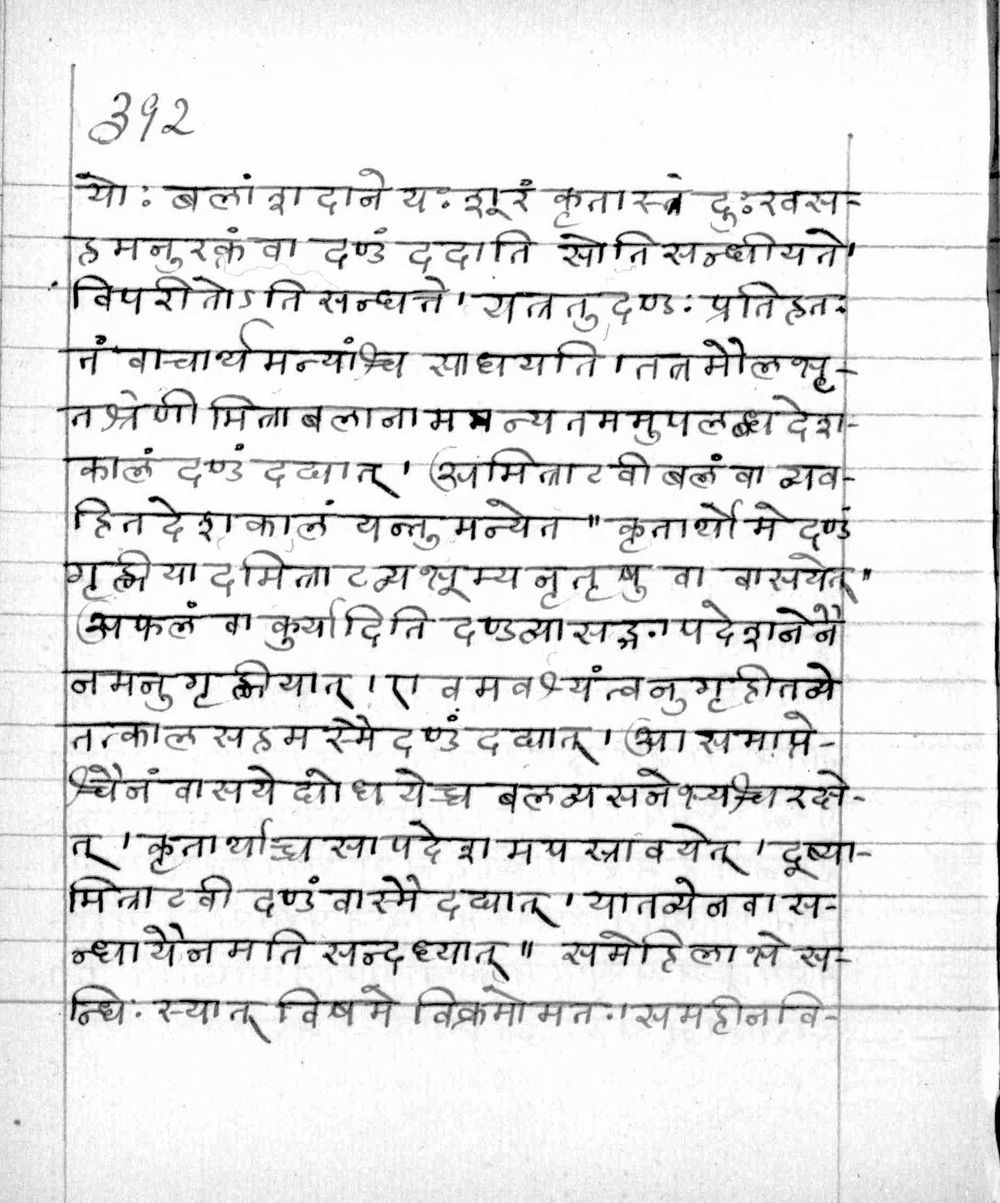 ३१२
योः बलांशदाने यः शूरं कृतास्त्रं दुःखस-
हमनुरक्तं वा दण्डं ददाति सोतिसन्धीयते।
विपरीतोऽतिसन्धत्ते। यत्र तु दण्डः प्रतिहतः
तं वाचार्थमन्यांश्च साधयति। तत्र मौलभृ-
तश्रेणीमित्राबलानामन्यतममुपलब्धदेश-
कालं दण्डं दद्यात्। अमित्राटवीबलं वा व्यव-
हितदेशकालं यन्तु मन्येत "कृतार्थो मे दण्डं
गृह्णीयादमित्राटव्यभूम्यनृतृषु वा वासयेत्"
अफलं वा कुर्यादिति दण्डव्यासङ्गापदेशनेनै
नमनुगृह्णीयात्। एवमवश्यंत्वनुगृहीतव्ये
तत्कालसहमस्मै दण्डं दद्यात्। आसमाप्ते-
श्चैनं वासयेद्योधयेच्च बलव्यसनेभ्यश्च रक्षे-
त्। कृतार्थाच्च सापदेशमपस्रावयेत्। दूष्या-
मित्राटवीदण्डं वास्मै दद्यात्। यातव्येन वा स-
न्धायैनमतिसन्दध्यात्" समेहिलाभे स-
न्धिः स्यात् विषमे विक्रमोमतः। समहीनवि-